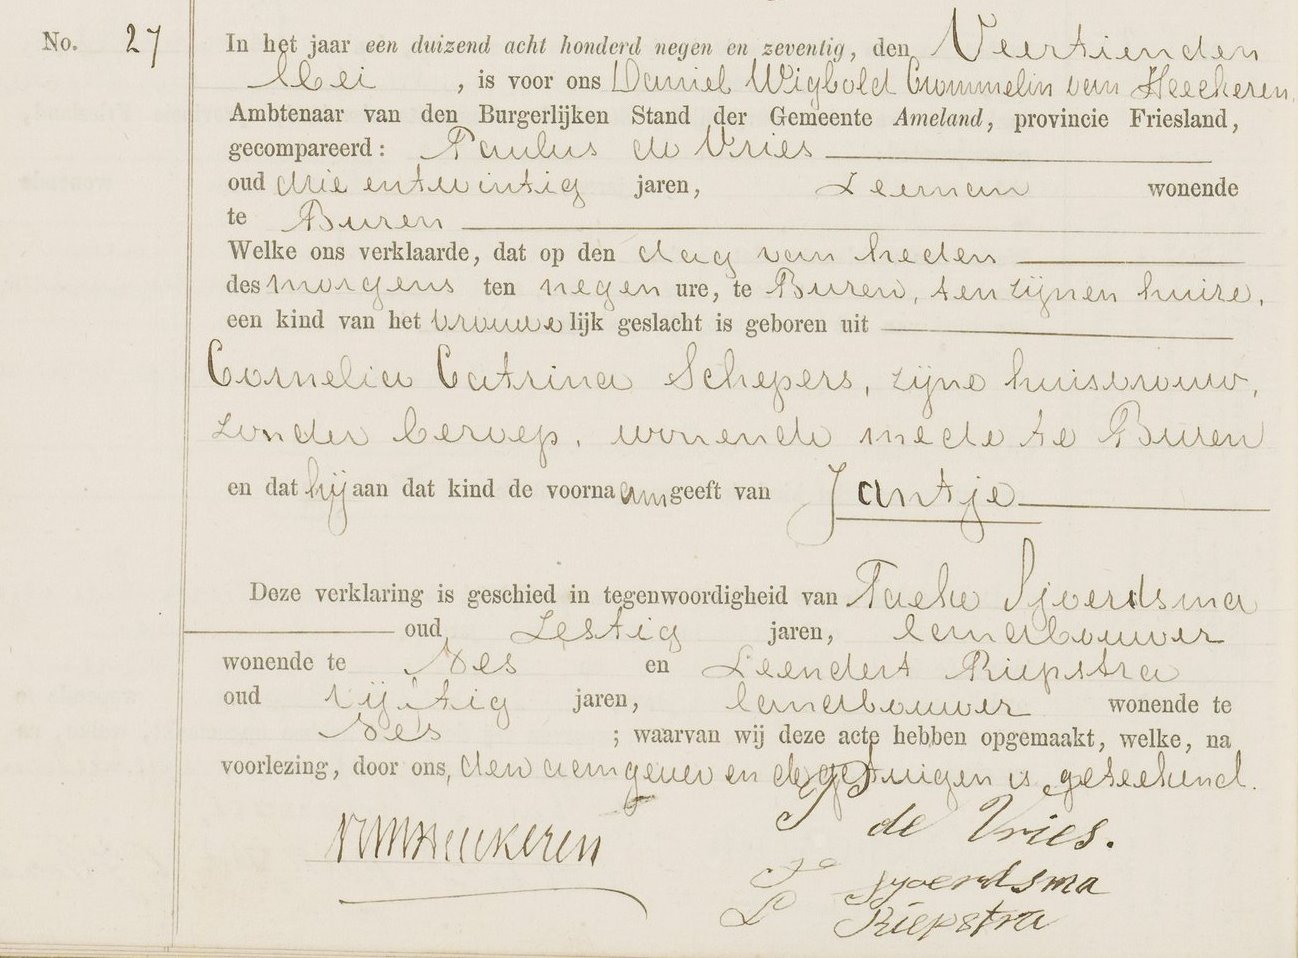 No. 27
In het jaar een duizend acht honderd negen en zeventig, den Veertienden
Mei, is voor ons Daniel Wigbold Crommelin van Heeckeren,
Ambtenaar van den Burgerlijken Stand der Gemeente Ameland, provincie Friesland,
gecompareerd: Paulus de Vries
oud drieentwintig jaren, Zeeman wonende
te Buren
Welke ons verklaarde, dat op den dag van heden
des morgens ten negen ure, te Buren, ten zijnen huize,
een kind van het vrouwelijk geslacht is geboren uit
Cornelia Catrina Schepers, zijne huisvrouw,
zonder beroep, wonende mede te Buren
en dat hij aan dat kind de voornaam geeft van Jantje
Deze verklaring is geschied in tegenwoordigheid van Taeke Sjoerdsma
oud Zestig jaren, landbouwer
wonende te Nes en Leendert Riepstra
oud vijftig jaren, landbouwer wonende te
Nes; waarvan wij deze acte hebben opgemaakt, welke, na
voorlezing, door ons, den aangever en de getuigen is geteekend.
P de Vries.
Heeckeren
T Sjoerdsma
L Riepstra